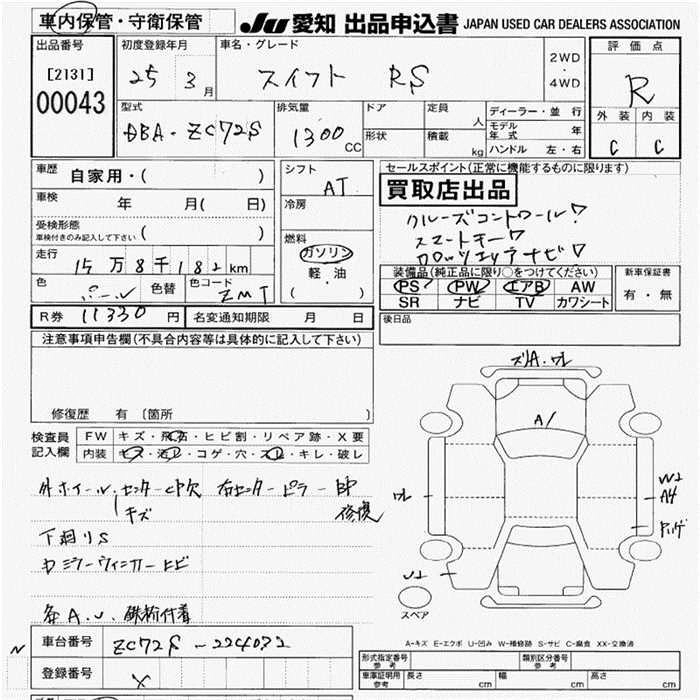 車内保管・守衛保管
JU 愛知 出品申込書 JAPAN USED CAR DEALERS ASSOCIATION
出品番号
[2131]
00043
初度登録年月
25 3月
車名・グレード
スイフト RS
2WD
・
4WD
評価点
R
外装 内装
C C
型式
DBA-ZC72S
排気量
1300 CC
ドア
形状
定員
人
積載
kg
ディーラー・並行
モデル年式 年
ハンドル 左・右
車歴 自家用・( )
車検 年 月( 日)
受検形態
車検付きのみ記入して下さい ( )
走行 15万8千182km
色 パール 色替 色コード ZMT
シフト
AT
冷房
燃料
ガソリン
軽・油
( )
セールスポイント(正常に機能するものに限ります)
買取店出品
クルーズコントロール!
スマートキー
装備品(純正品に限り○をつけてください)
PS PW エアB AW
SR ナビ TV カワシート
新車保証書
有・無
R券 11330円 名変通知期限 月 日
後日品
注意事項申告欄(不具合内容等は具体的に記入して下さい)
修復歴 有 [箇所 ]
検査員
記入欄
FW キズ・飛石・ヒビ割・リペア跡・X要
内装 キズ・汚レ・コゲ・穴・スレ・キレ・破レ
外ホイール、センターCP欠 右センターピラーBP
キズ 修復
下廻りS
各A.U、鉄粉付着
ズリA・ワレ
A1
ワレ
W2
A4
U2
スペア
A-キズ E-エクボ U-凹み W-補修跡 S-サビ C-腐食 XX-交換済
車台番号 ZC72S-224032
登録番号
N
X
形式指定番号
参考
類別区分番号
参考
車庫証明用
参考
長さ cm 幅 cm 高さ cm